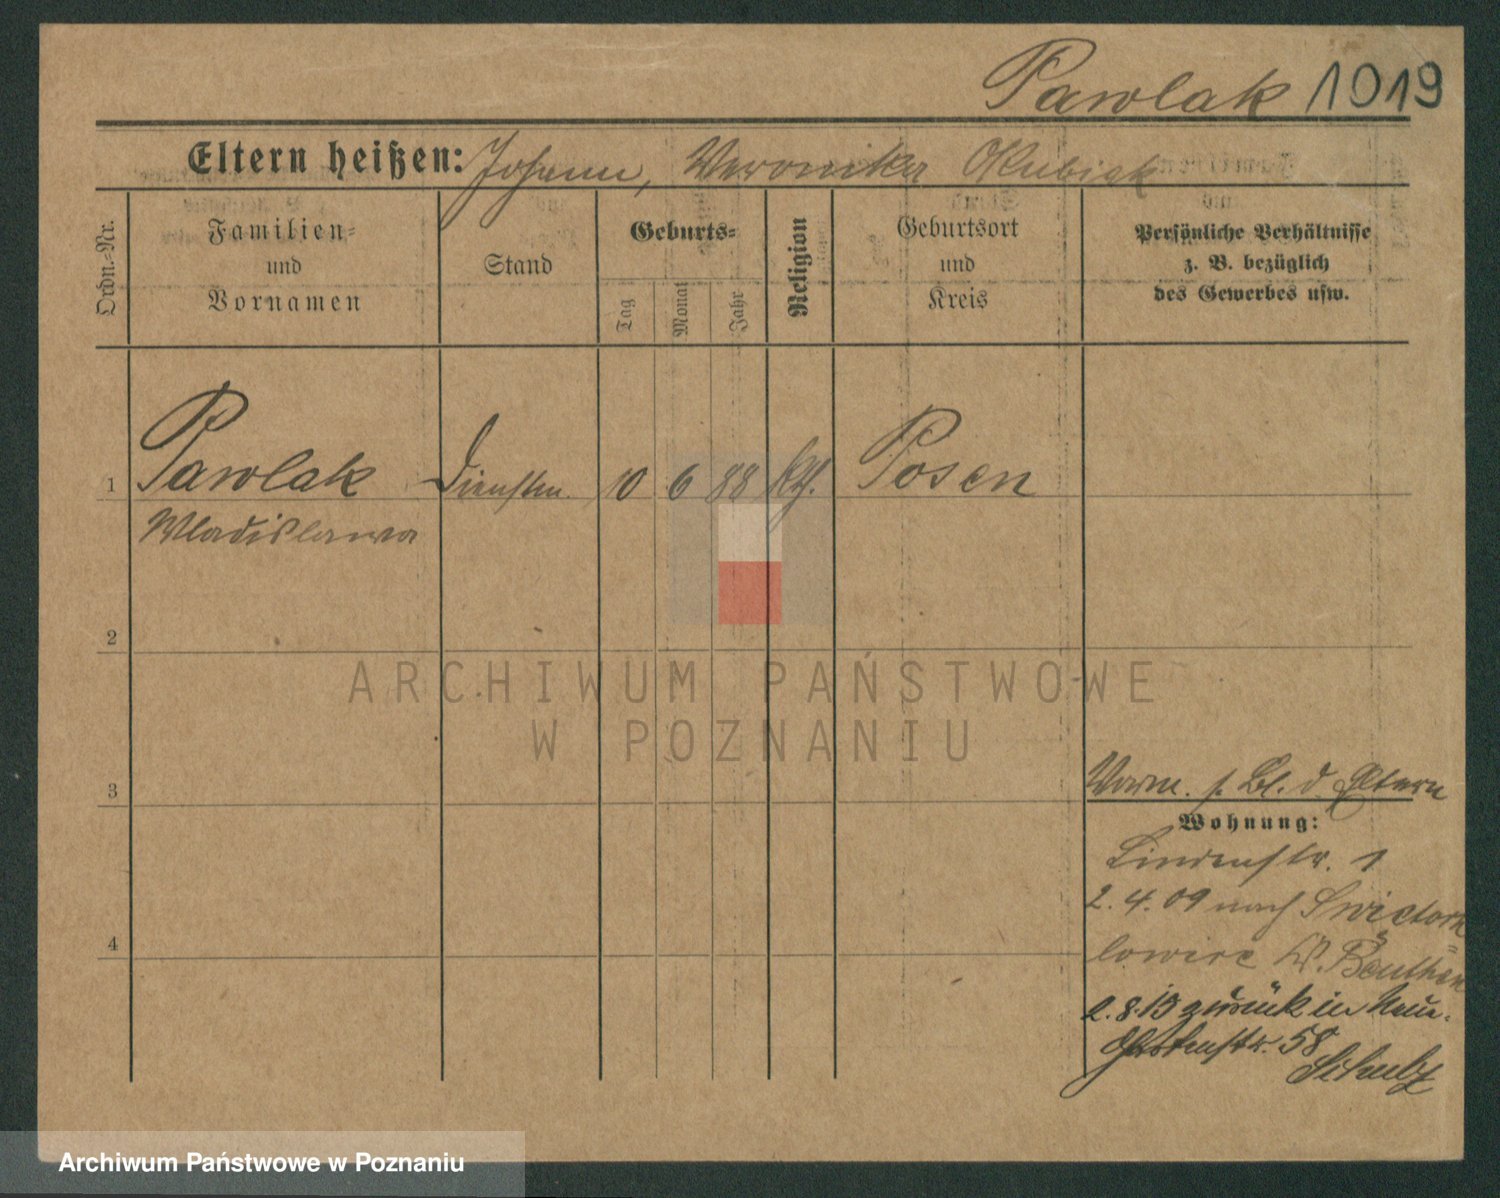 Pawlak 1019
Eltern heißen: Johann, Weronika Kubiak
Ordn.-Nr.
Familien-
und
Vornamen
Stand
Geburts-
Tag
Monat
Jahr
Religion
Geburtsort
und
Kreis
Persönliche Verhältnisse
z. B. bezüglich
des Gewerbes usw.
1 Pawlak Dienstm. 10 6 88 kth. Posen
Wladislawa
2
3
Vorm. s. Bl. d Eltern
Wohnung:
Lindenstr. 1
2. 4. 09 nach
4
Beuthen
2. 8. 13 zurück in Neue-
Gartenstr. 58
Schulz
ARCHIWUM PAŃSTWOWE
W POZNANIU
Archiwum Państwowe w Poznaniu